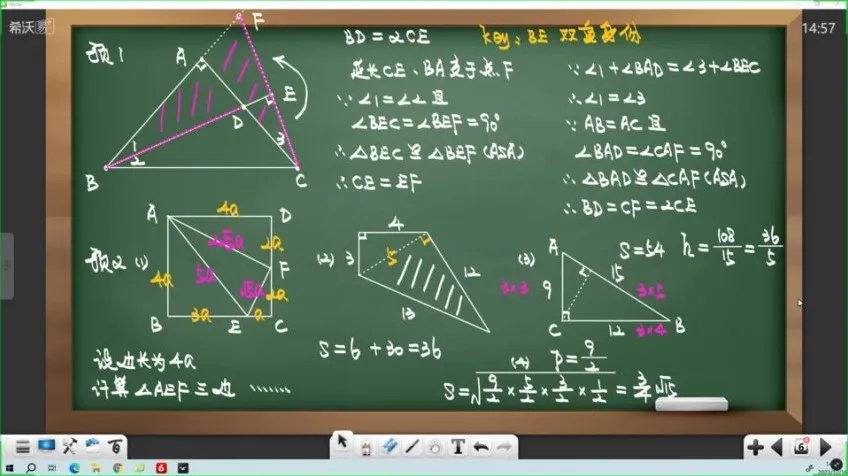 希沃
14:57
预1
F
A
E
D
1
2
3
B
C
BD = 2CE
key: BE 双重身份
延长CE、BA交于点F
∵ ∠1=∠2 且
∠BEC=∠BEF=90°
∴ △BEC≌△BEF (ASA)
∴ CE=EF
∵ ∠1+∠BAD=∠3+∠BEC
∴ ∠1=∠3
∵ AB=AC 且
∠BAD=∠CAF=90°
∴ △BAD≌△CAF (ASA)
∴ BD=CF=2CE
预2 (1)
A
4a
D
2√5a
2a
F
4a
5a
√5a
2a
B
3a
E
a
C
设边长为4a
计算△AEF三边 ……
(2)
4
3
5
12
13
S=6+30=36
(3)
A
9
15
3×3
3×5
C
12
3×4
B
S=54
h=108/15=36/5
(4)
P=9/2
S=√9/2×5/2×3/2×1/2=3/4√15